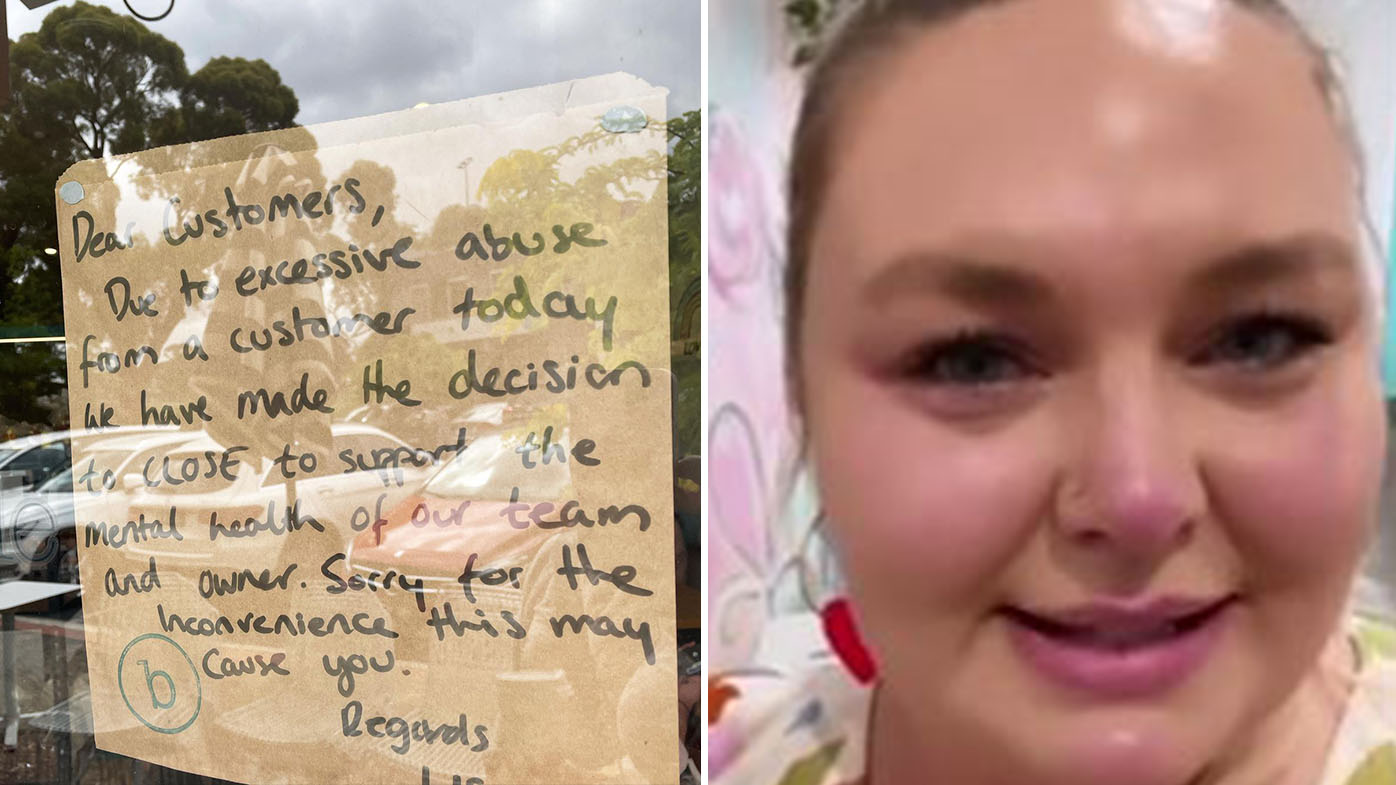 Dear Customers,
Due to excessive abuse
from a customer today
we have made the decision
to CLOSE to support the
mental health of our team
and owner. Sorry for the
Inconvenience this may
Cause you.
b
Regards